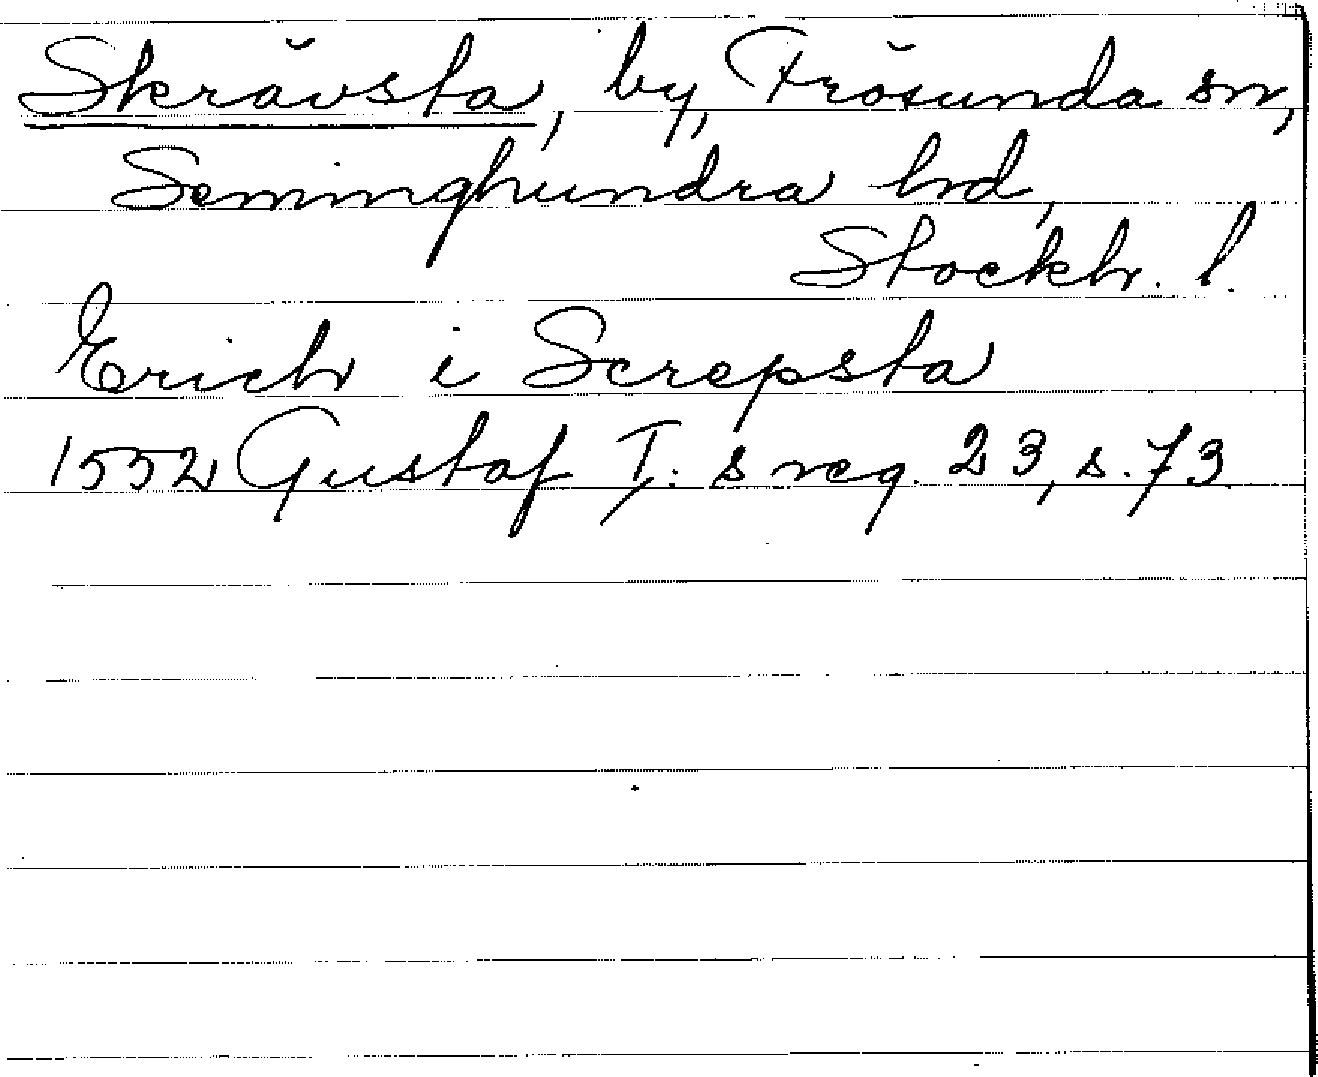 Skrävsta, by, Frösunda sn,
Seminghundra hd,
Stockh. l.
Erich i Screpsta
1552 Gustaf I:s reg. 23, s. 73